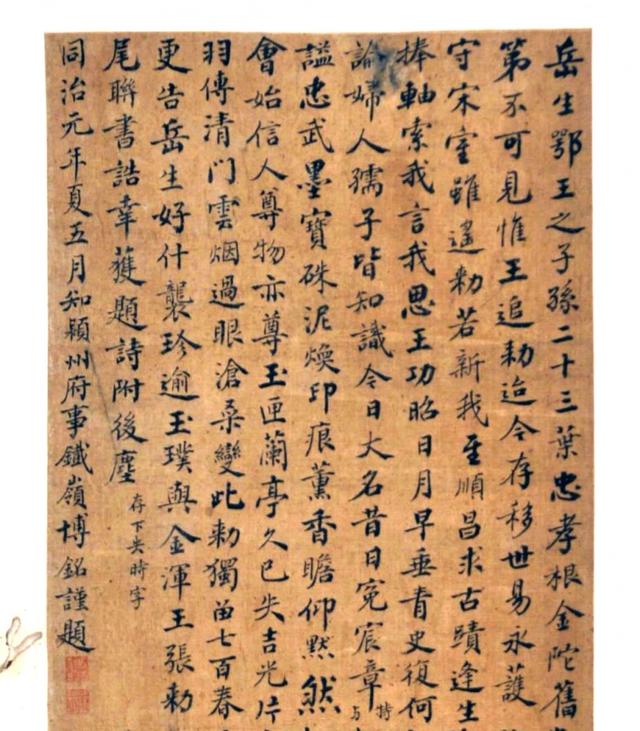 岳生鄂王之子孫二十三葉忠孝根金陀舊
第不可見惟王追勅迨今存移世易永護
守宋室雖遥勅若新我至順昌求古蹟逢生
捧軸索我言我思王功昭日月早垂青史復何
論婦人孺子皆知識今日大名昔日冤宸章特与
諡忠武墨寶硃泥煥印痕薰香瞻仰黙然
會始信人尊物亦尊玉匣蘭亭久已失吉光片
羽傳清門雲烟過眼滄桑變此勅獨留七百春
更告岳生好什襲珍逾玉璞與金渾王張勅
尾聯書誥幸獲題詩附後塵
存下失時字
同治元年夏五月知潁州府事鐵嶺博銘謹題